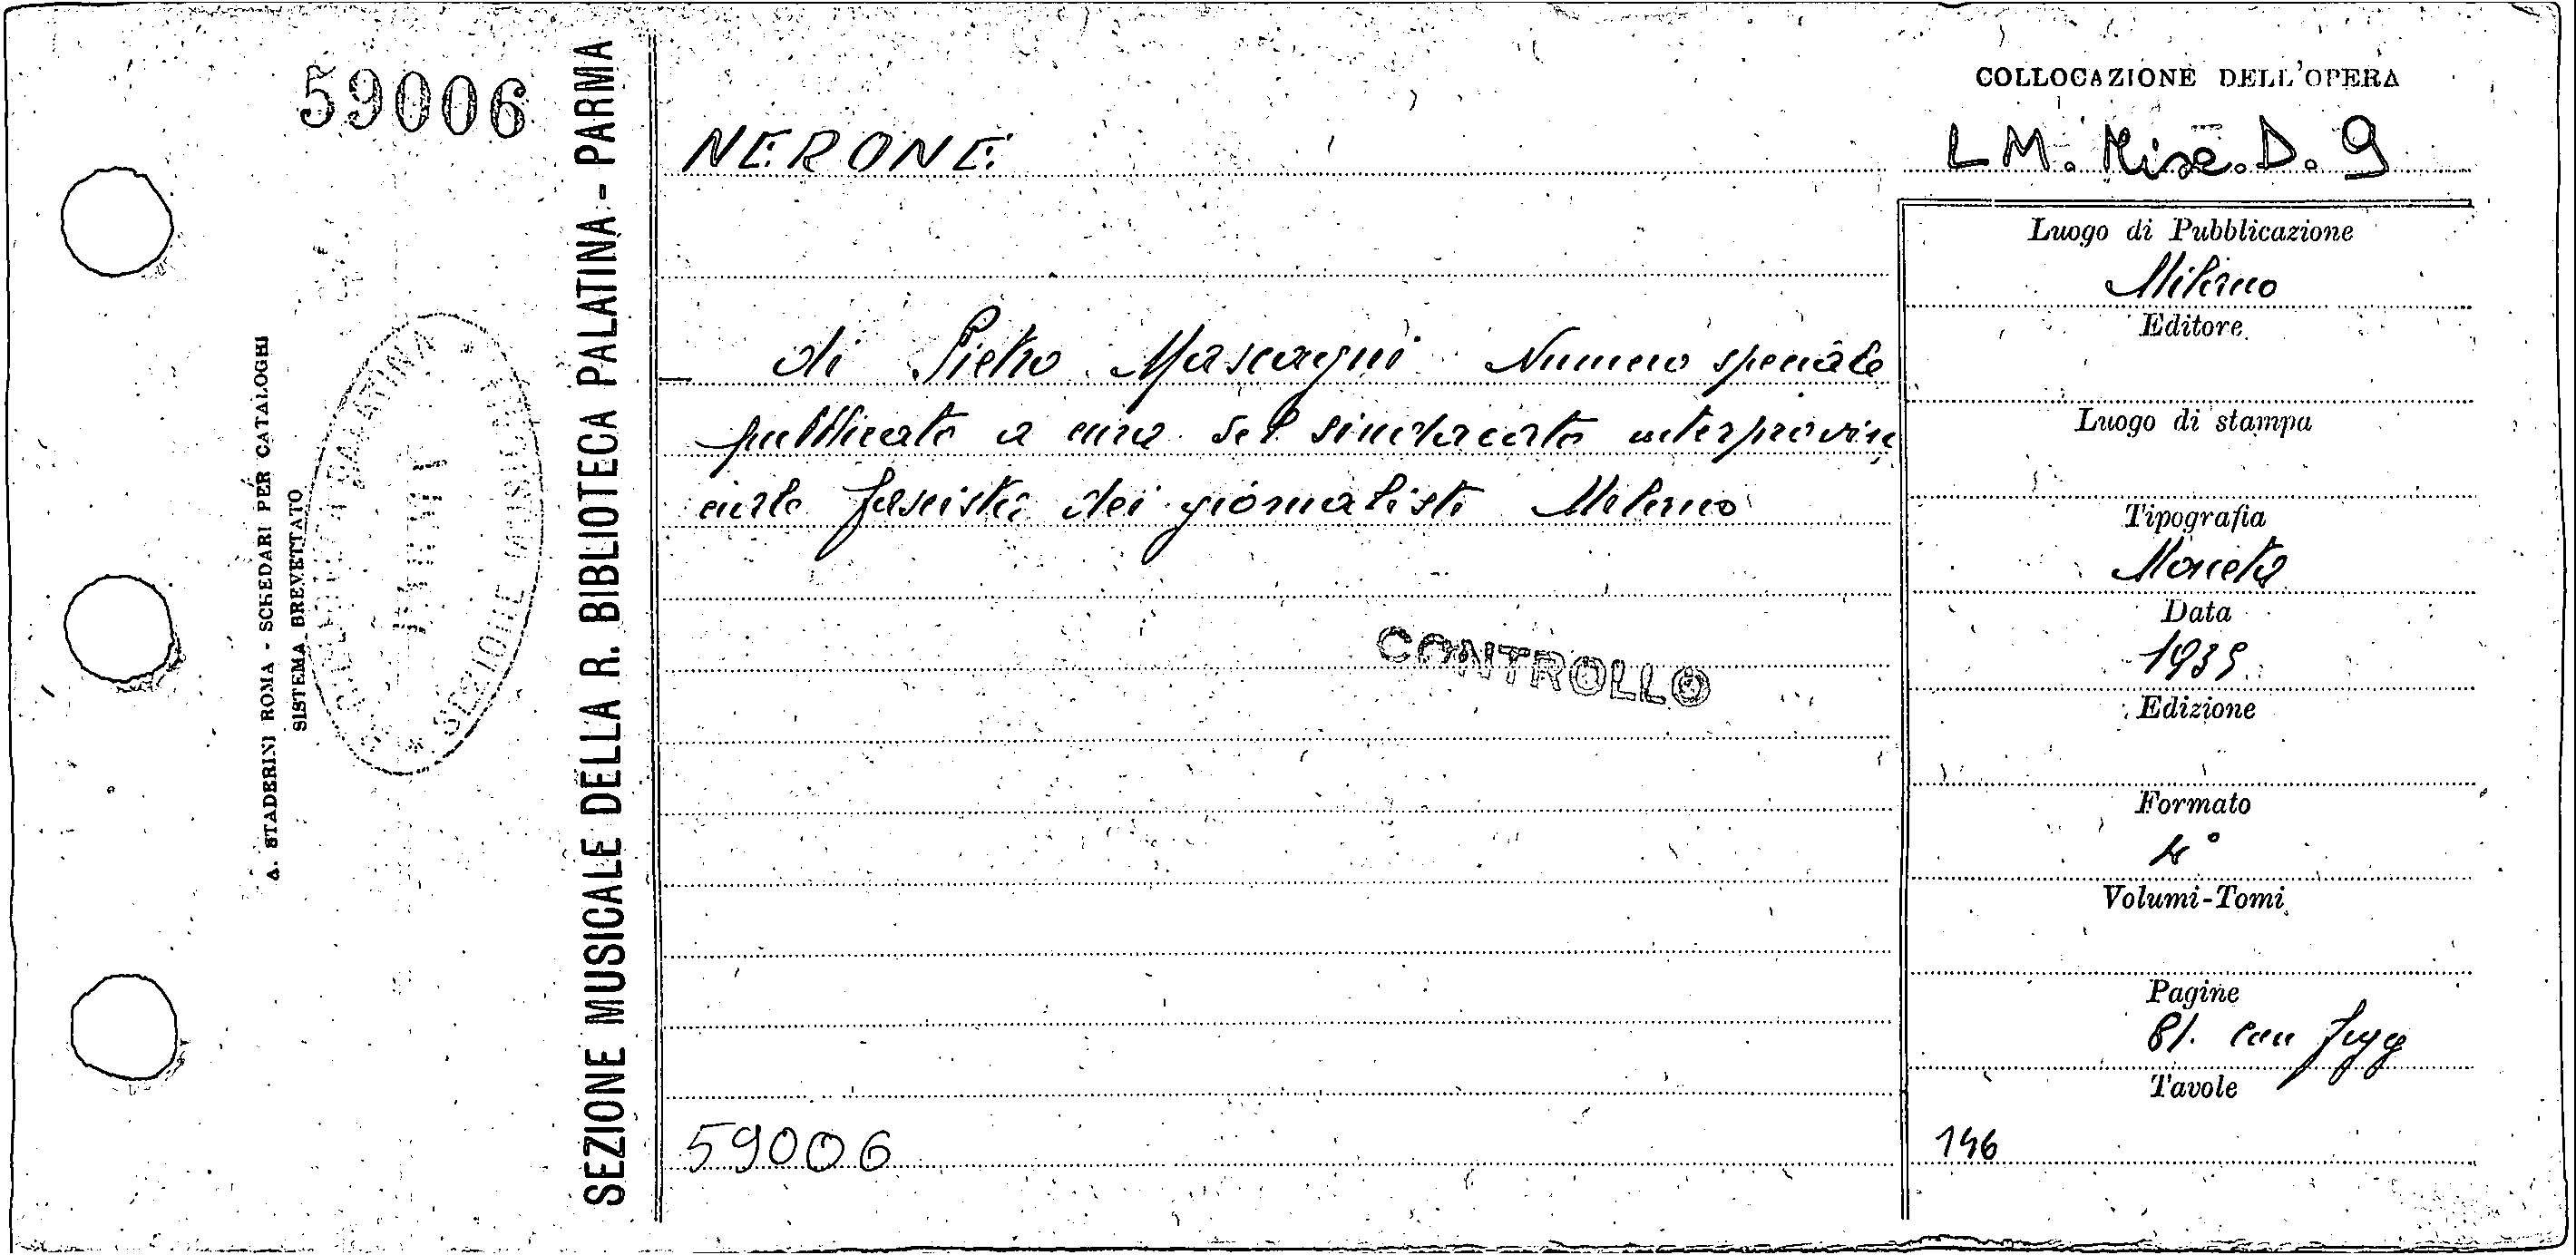 59006
A. STADERINI ROMA - SCHEDARI PER CATALOGHI
SISTEMA BREVETTATO
PALATINA
SEZIONE MUSICALE
SEZIONE MUSICALE DELLA R. BIBLIOTECA PALATINA - PARMA
NERONE
di Pietro Mascagni Numero speciale
pubblicato a cura del sindacato interprovin
ciale fascista dei giornalisti Milano
CONTROLLO
59006
COLLOCAZIONE DELL'OPERA
LM. Misc. D. 9
Luogo di Pubblicazione
Milano
Editore
Luogo di stampa
Tipografia
Moneta
Data
1935
Edizione
Formato
4°
Volumi-Tomi
Pagine
81. con
Tavole
146